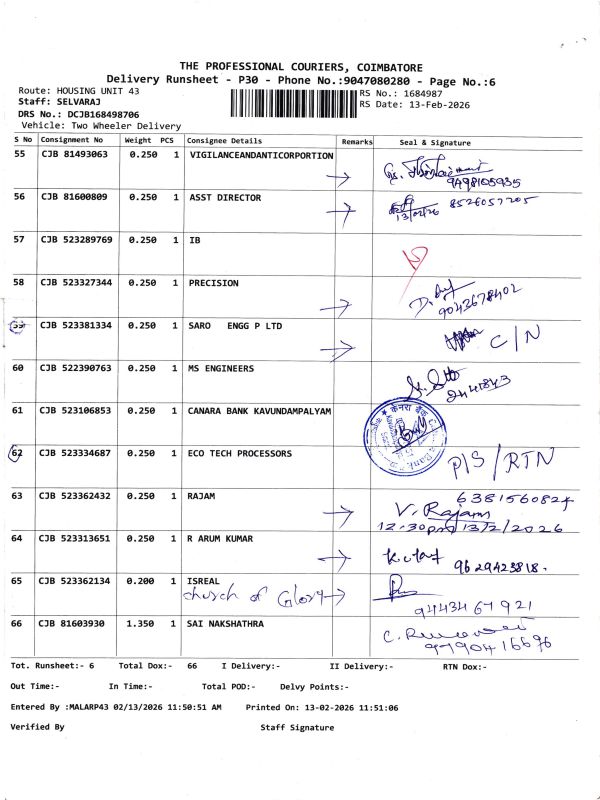 THE PROFESSIONAL COURIERS, COIMBATORE
Delivery Runsheet - P30 - Phone No.:9047080280 - Page No.:6
Route: HOUSING UNIT 43
RS No.: 1684987
Staff: SELVARAJ
RS Date: 13-Feb-2026
DRS No.: DCJB168498706
Vehicle: Two Wheeler Delivery
S No Consignment No Weight PCS Consignee Details Remarks Seal & Signature
55 CJB 81493063 0.250 1 VIGILANCEANDANTICORPORTION
9498105935
56 CJB 81600809 0.250 1 ASST DIRECTOR 13/02/26 8526057205
57 CJB 523289769 0.250 1 IB
58 CJB 523327344 0.250 1 PRECISION
9043678402
59 CJB 523381334 0.250 1 SARO ENGG P LTD C/N
60 CJB 522390763 0.250 1 MS ENGINEERS
2441843
61 CJB 523106853 0.250 1 CANARA BANK KAVUNDAMPALYAM केनरा बैंक
62 CJB 523334687 0.250 1 ECO TECH PROCESSORS P/S/RTN
63 CJB 523362432 0.250 1 RAJAM 6381560824
V. Rajam
12.30pm 13/2/2026
64 CJB 523313651 0.250 1 R ARUM KUMAR
9629423818.
65 CJB 523362134 0.200 1 ISREAL
church of Glory
9443467921
66 CJB 81603930 1.350 1 SAI NAKSHATHRA
9790416696
Tot. Runsheet:- 6 Total Dox:- 66 I Delivery:- II Delivery:- RTN Dox:-
Out Time:- In Time:- Total POD:- Delvy Points:-
Entered By :MALARP43 02/13/2026 11:50:51 AM Printed On: 13-02-2026 11:51:06
Verified By Staff Signature